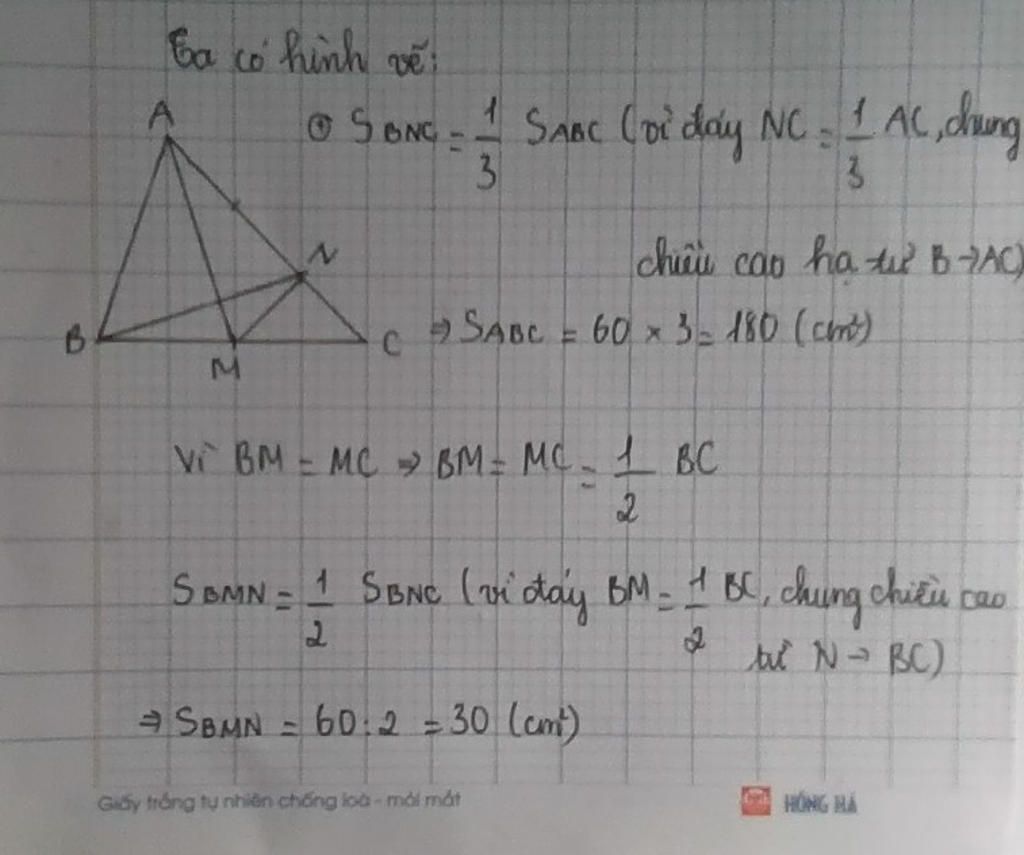 Ta có hình vẽ:
A
+ SBNC = 1/3 SABC (vì đáy NC = 1/3 AC, chung
N
chiều cao hạ từ B → AC)
B
C
⇒ SABC = 60 × 3 = 180 (cm²)
M
Vì BM = MC ⇒ BM = MC = 1/2 BC
SBMN = 1/2 SBNC (vì đáy BM = 1/2 BC, chung chiều cao
từ N → BC)
⇒ SBMN = 60 : 2 = 30 (cm²)
Giấy trắng tự nhiên chống loà - mỏi mắt
HỒNG HÀ